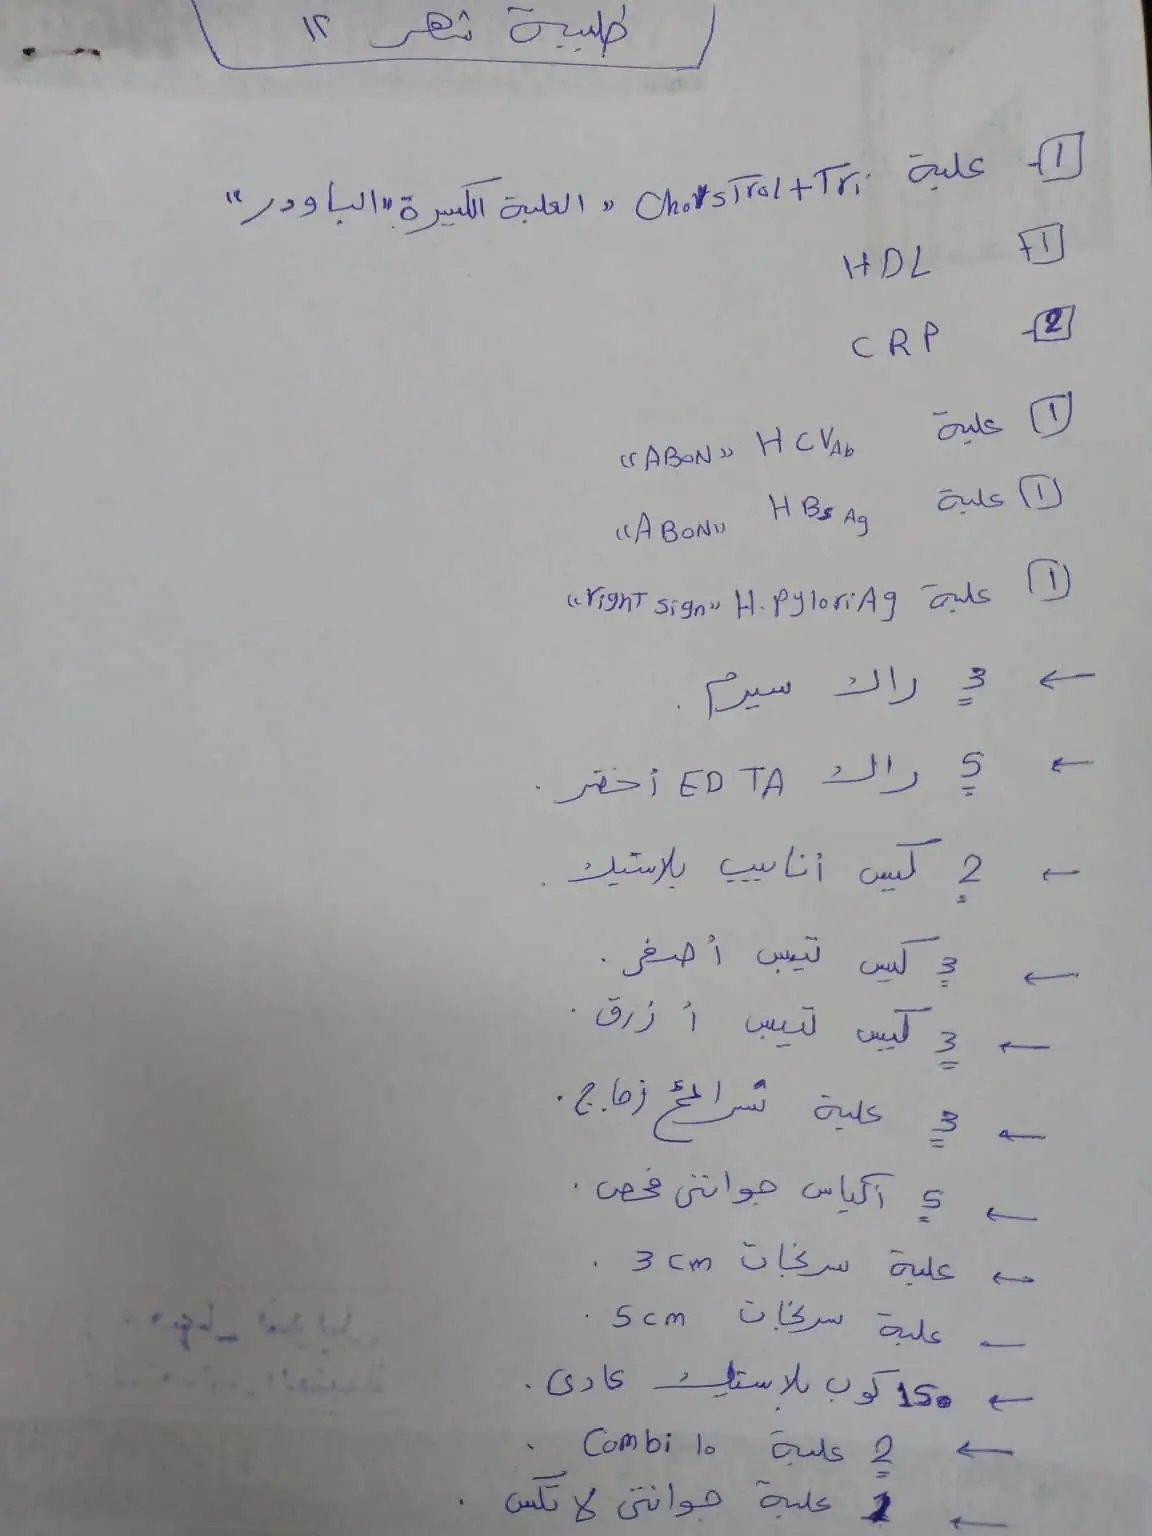 طلبية شهر ١٢
1- علبة Cholstrol+Tri "العلبة الكبيرة" "الباودر"
1- HDL
2- CRP
1 علبة HCV Ab "ABON"
1 علبة HBs Ag "ABON"
1 علبة H.Pylori Ag "right sign"
← 3 راك سيرم.
← 5 راك EDTA أخضر.
← 2 كيس أنابيب بلاستيك.
← 3 كيس تيبس أصفر.
← 3 كيس تيبس أزرق.
← 3 علبة شرائح زجاج.
← 5 أكياس جوانتى فحص.
← علبة سرنجات 3cm.
- علبة سرنجات 5cm.
← 150 كوب بلاستيك عادى.
← 2 علبة Combi 10.
← 1 علبة جوانتى لاتكس.